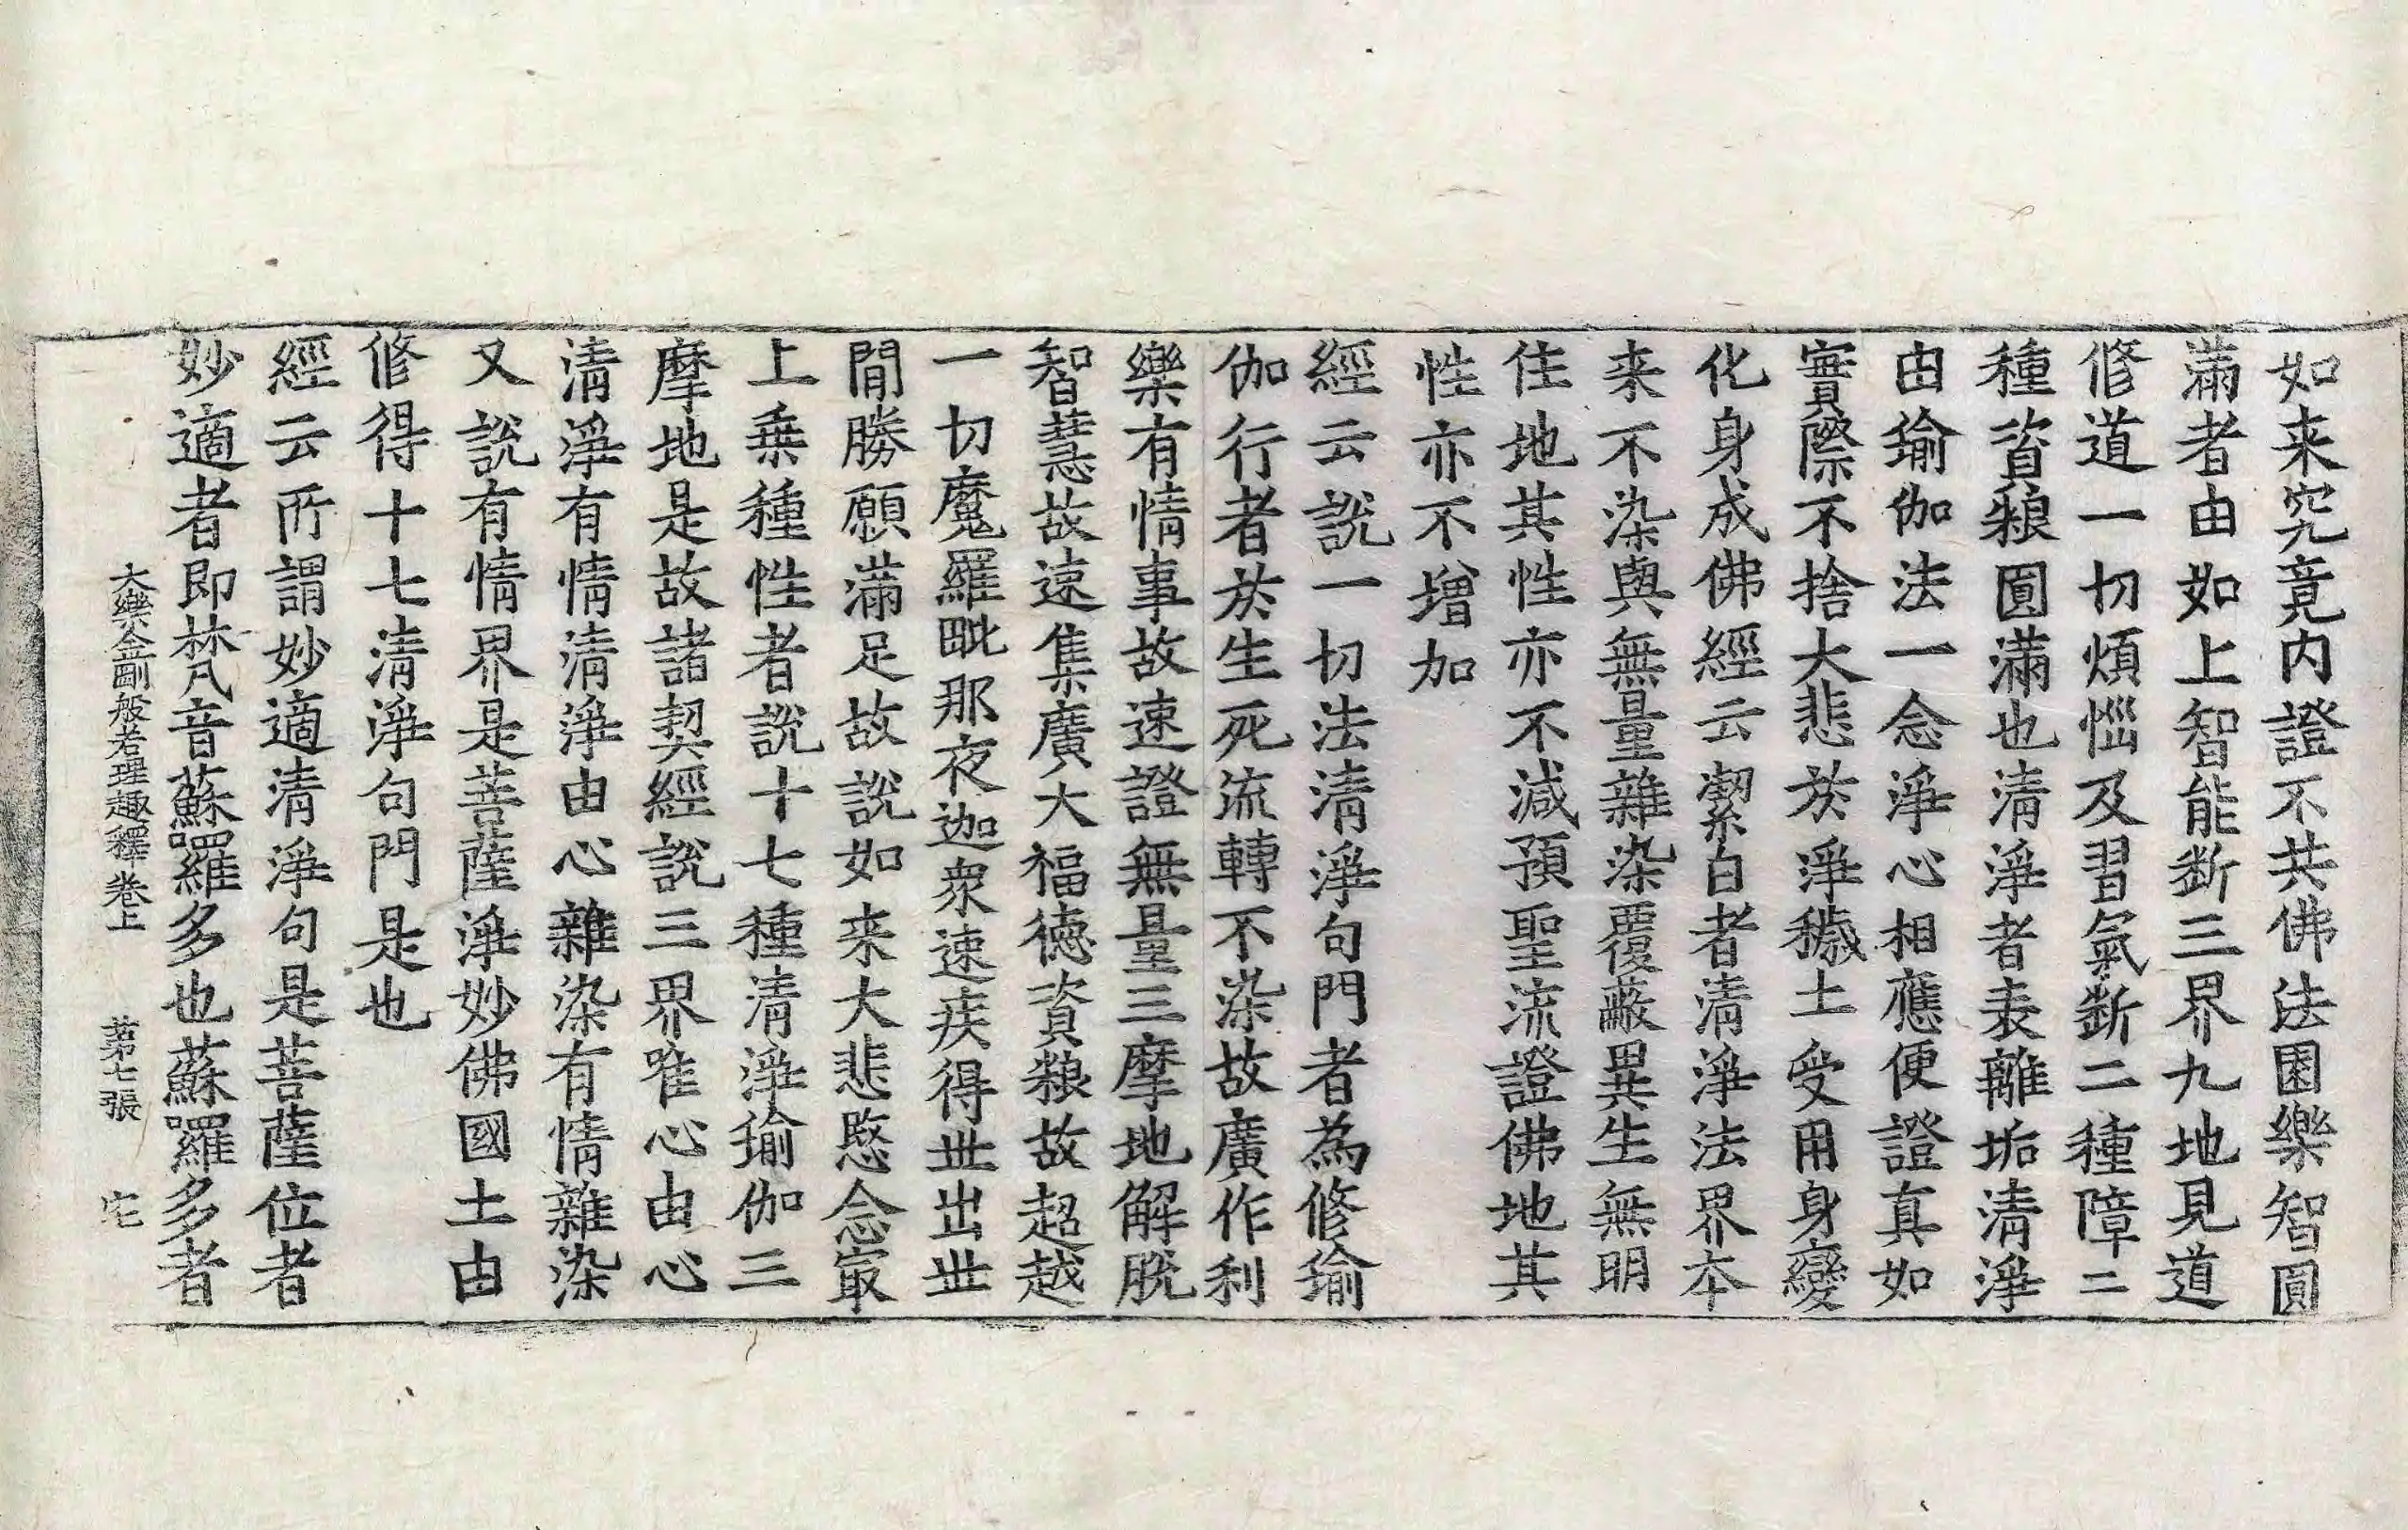 如来究竟内證不共佛法囷樂智圓
滿者由如上智能斷三界九地見道
修道一切煩惱及習氣斷二種障二
種資糧圓滿也清淨者表離垢清淨
由瑜伽法一念淨心相應便證真如
實際不捨大悲於淨穢土受用身變
化身成佛經云潔白者清淨法界本
来不染與無量雜染覆蔽異生無明
住地其性亦不減預聖流證佛地其
性亦不增加
經云說一切法清淨句門者為修瑜
伽行者於生死流轉不染故廣作利
樂有情事故速證無量三摩地解脫
智慧故速集廣大福德資糧故超越
一切魔羅毗那夜迦衆速疾得世出世
間勝願滿足故說如来大悲愍念㝡
上乗種性者說十七種清淨瑜伽三
摩地是故諸契經說三界唯心由心
清淨有情清淨由心雜染有情雜染
又說有情界是菩薩淨妙佛國土由
修得十七清淨句門是也
經云所謂妙適清淨句是菩薩位者
妙適者即梵音蘇囉多也蘇囉多者
大樂金剛般若理趣釋卷上　第七張　宅